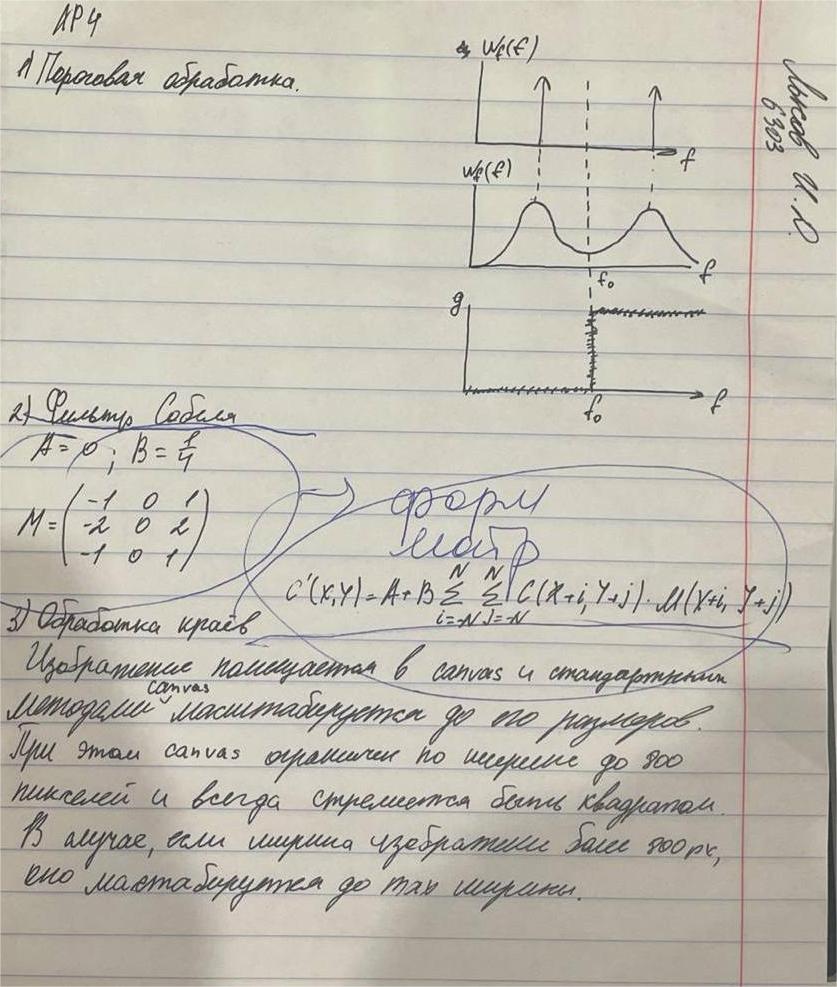 ЛР4
1) Пороговая обработка.
W_f(f)
f
W_f(f)
f₀
f
g
f₀
f
Лыков И.О.
6303
2) Фильтр Собеля
A = 0; B = 1/4
M = (-1 0 1
-2 0 2
-1 0 1)
форм
матр
C'(X,Y) = A + B Σ_{i=-N}^{N} Σ_{j=-N}^{N} C(X+i, Y+j) · M(X+i, Y+j))
3) Обработка краёв
Изображение помещается в canvas и стандартным
методами canvas масштабируется до его размеров.
При этом canvas ограничен по ширине до 800
пикселей и всегда стремится быть квадратом.
В случае, если ширина изображение более 800px,
оно масштабируется до max ширины.